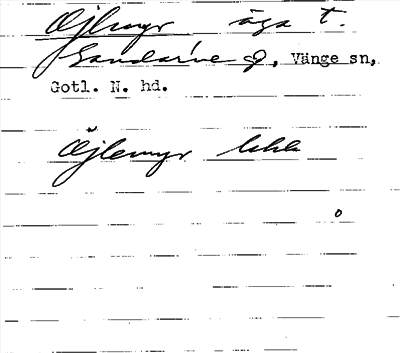 Öjlmyr äga t.
Sandarve g, Vänge sn,
Gotl. N. hd.
Öjlemyr